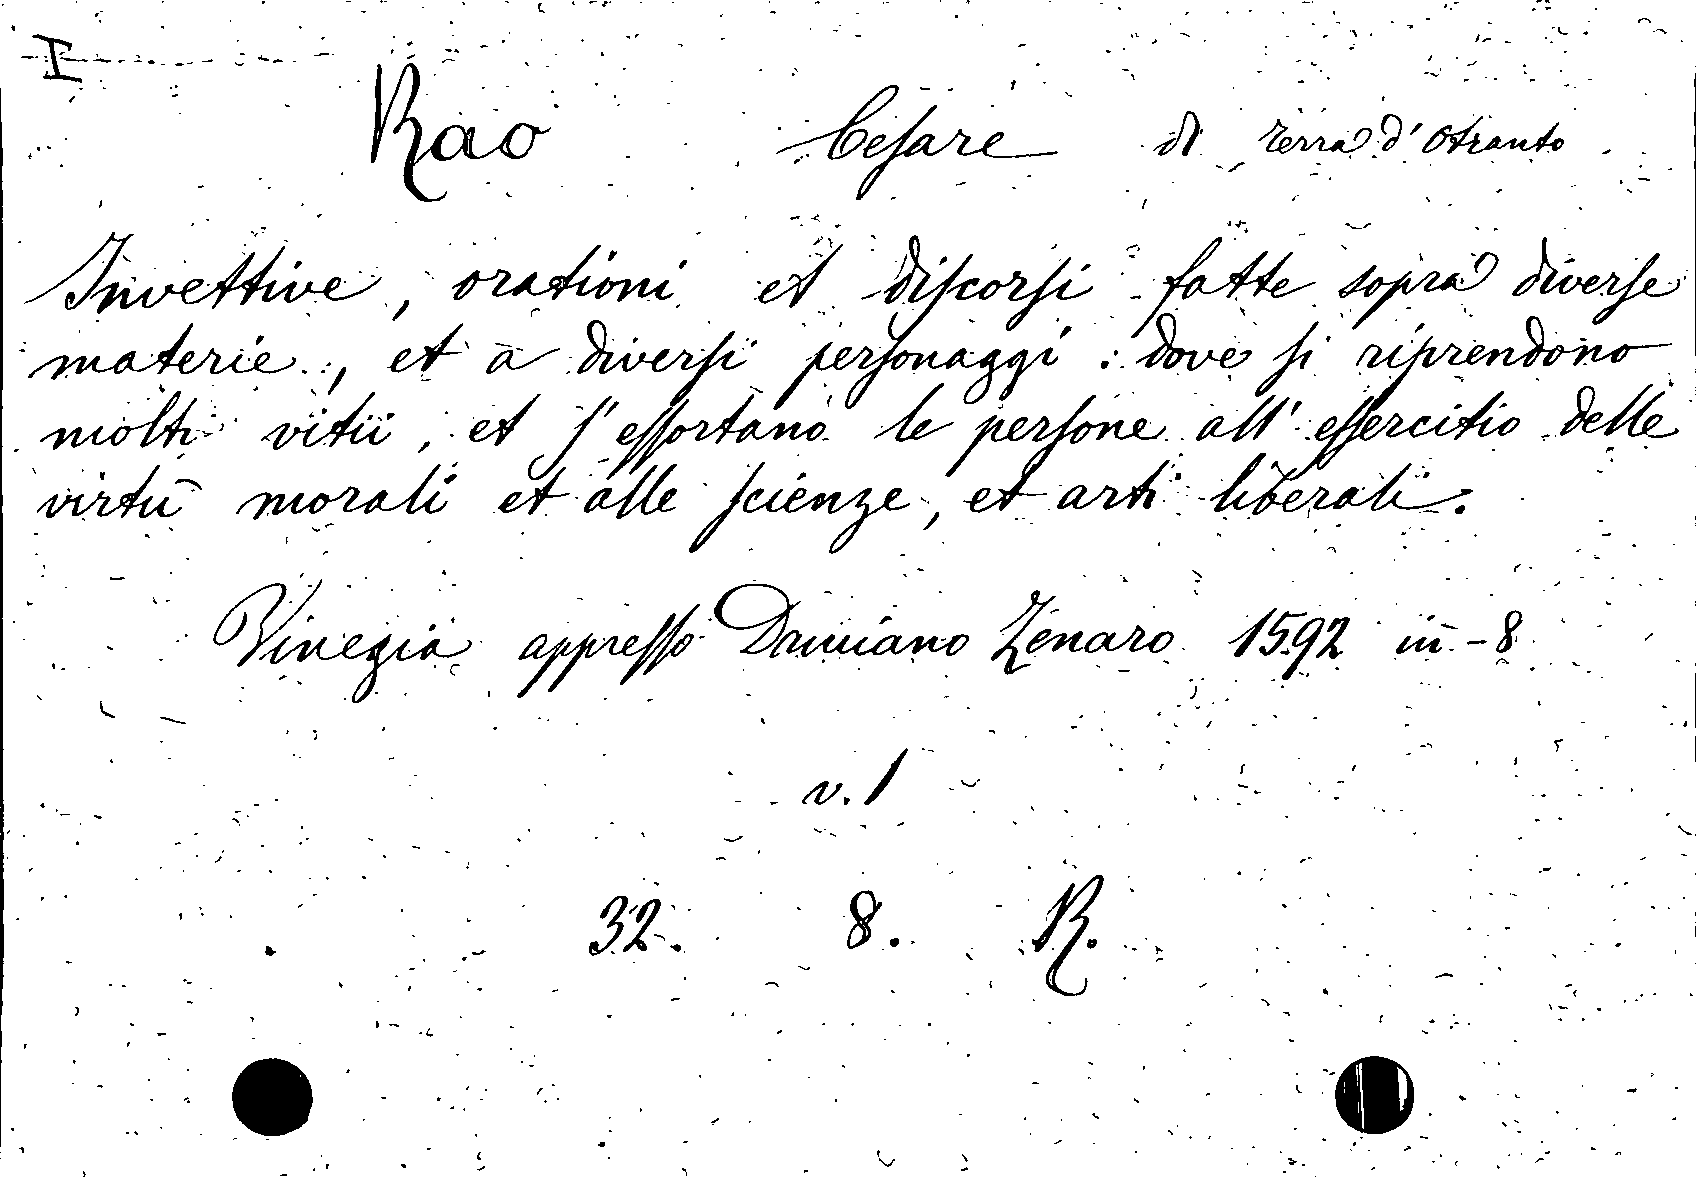 I
Rao Cesare di Terra d'Otranto
Invettive, orationi et discorsi fatte sopra diverse
materie, et a diversi personaggi: dove si riprendono
molti vitii, et s'essortano le persone all'essercitio delle
virtù morali et alle scienze, et arti liberali.
Vinegia appresso Damiano Zenaro 1592 in-8
v. 1
32. 8. R.